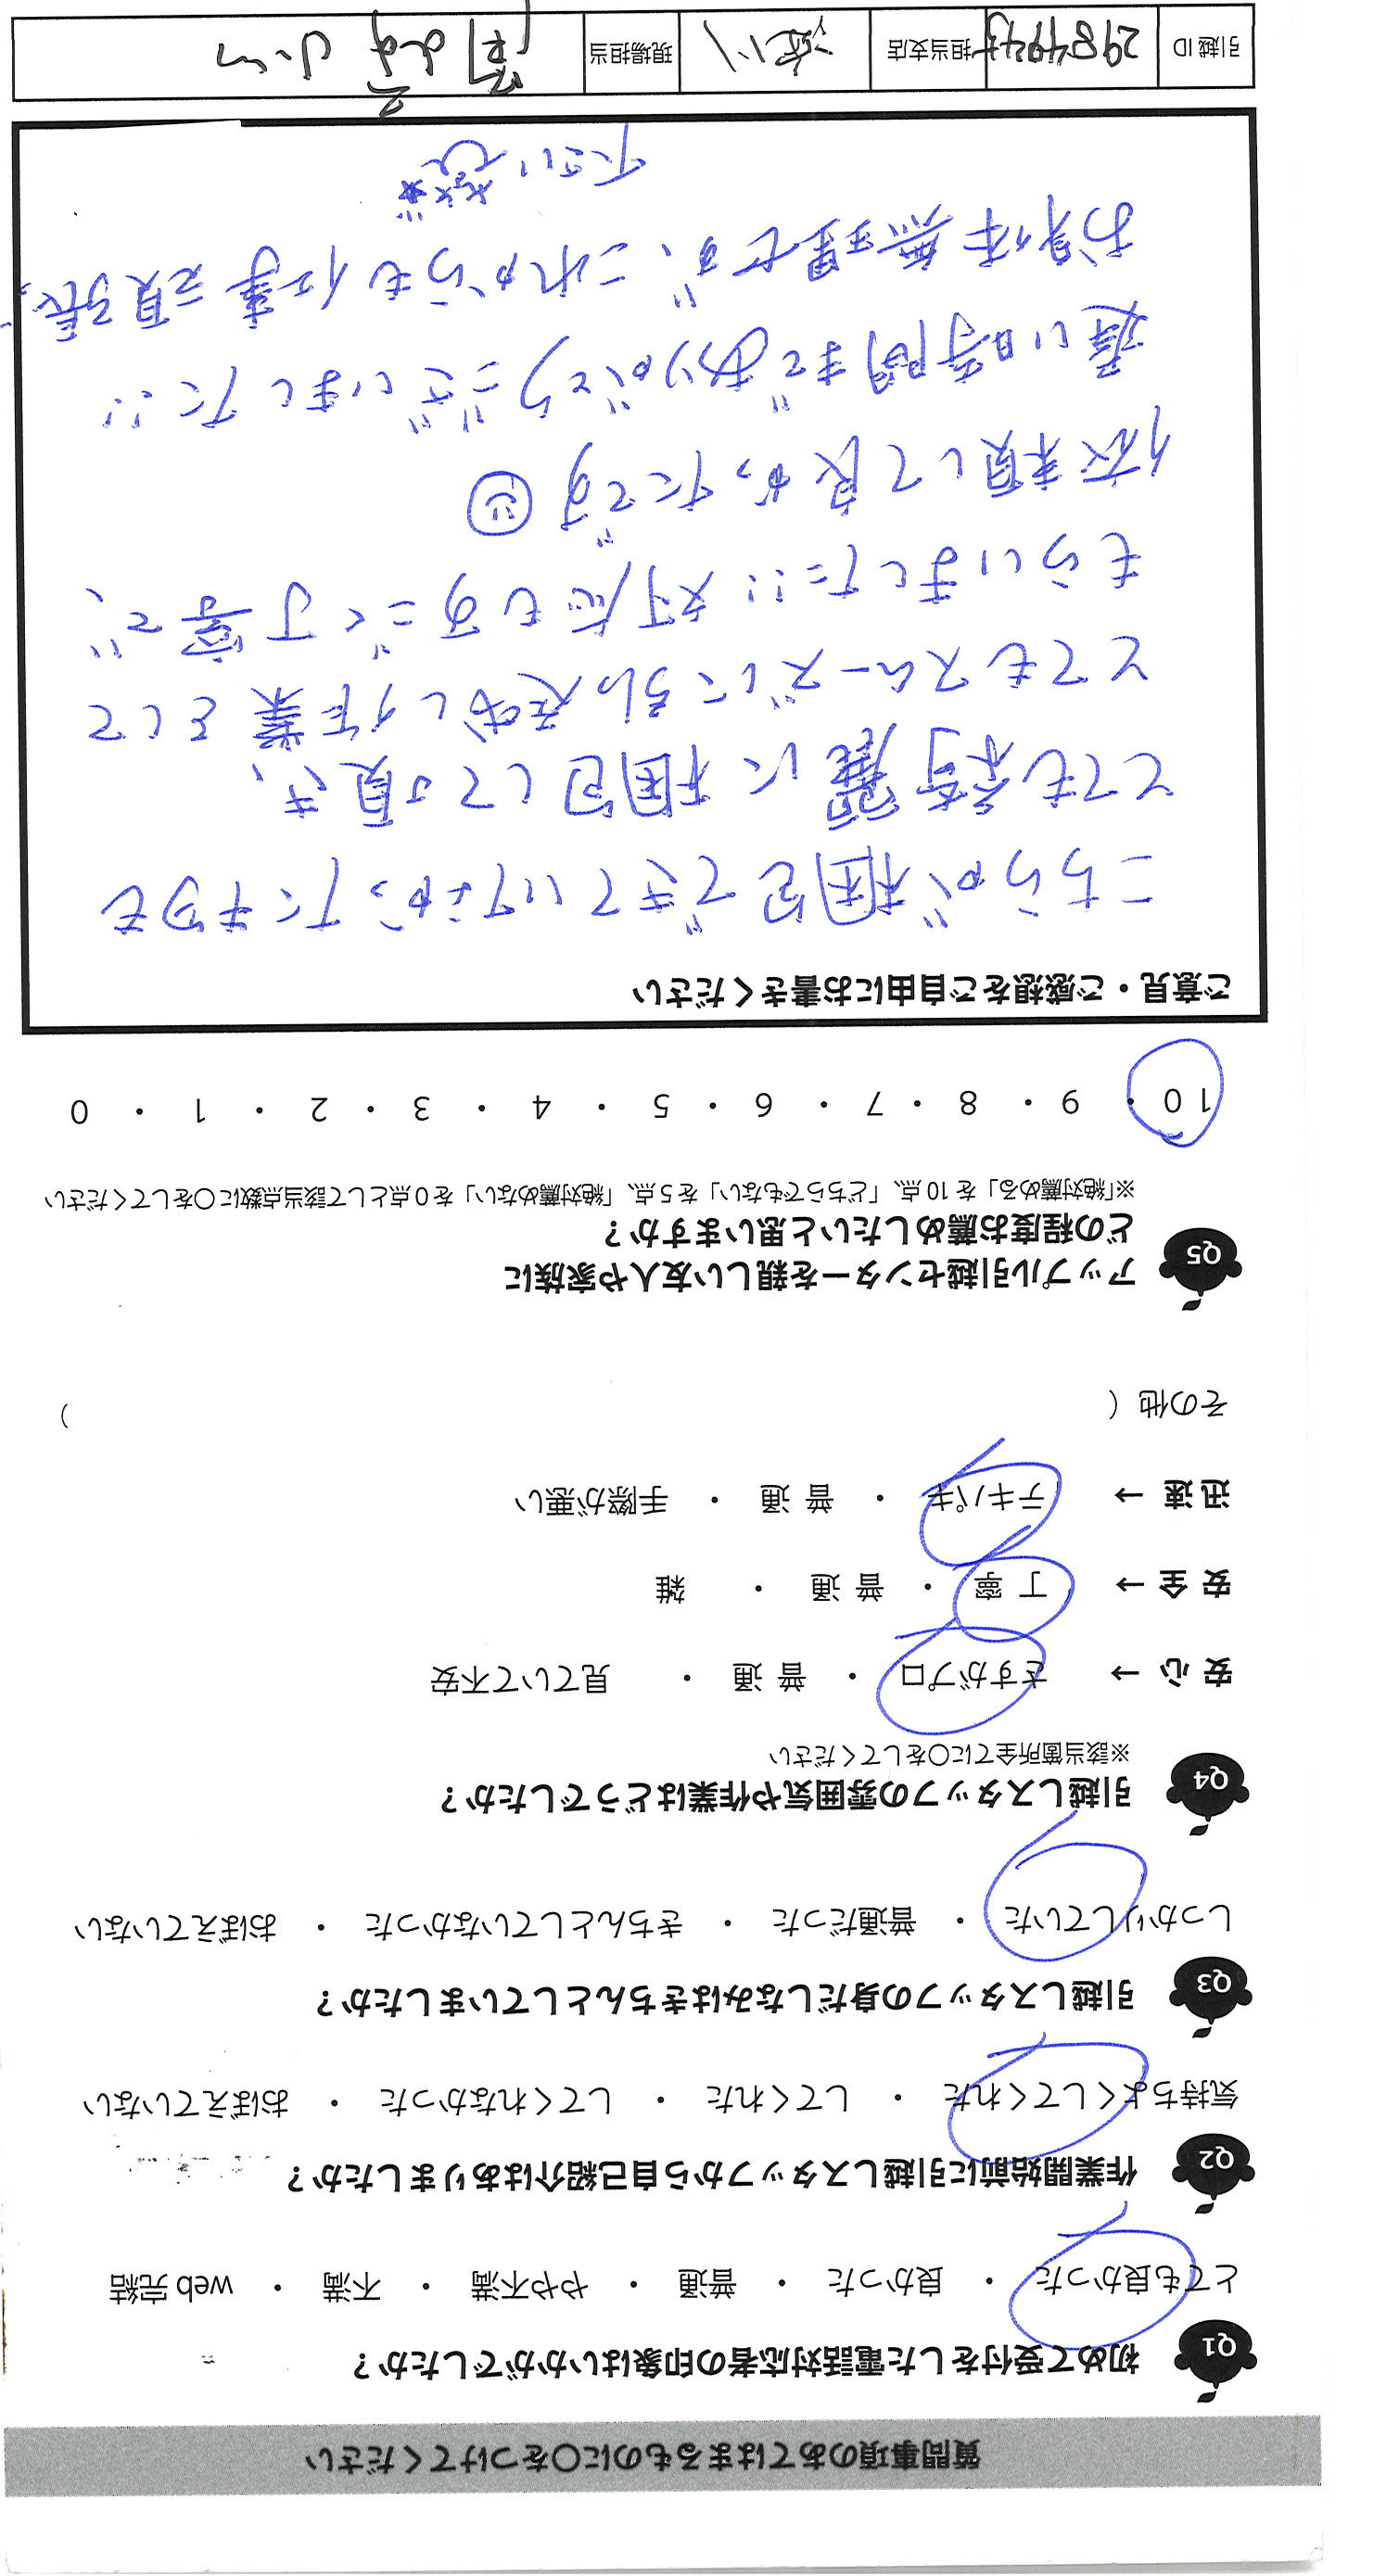 質問事項のあてはまるものに〇をつけてください
Q1 初めて受付をした電話対応者の印象はいかがでしたか？
とても良かった ・ 良かった ・ 普通 ・ やや不満 ・ 不満 ・ web 完結
Q2 作業開始前に引越しスタッフから自己紹介はありましたか？
気持ちよくしてくれた ・ してくれた ・ してくれなかった ・ おぼえていない
Q3 引越しスタッフの身だしなみはきちんとしていましたか？
しっかりしていた ・ 普通だった ・ きちんとしていなかった ・ おぼえていない
Q4 引越しスタッフの雰囲気や作業はどうでしたか？
※該当箇所全てに〇をしてください
安心 → さすがプロ ・ 普通 ・ 見ていて不安
安全 → 丁寧 ・ 普通 ・ 雑
迅速 → テキパキ ・ 普通 ・ 手際が悪い
その他 （ ）
Q5 アップル引越センターを親しい友人や家族に
どの程度お薦めしたいと思いますか？
※「絶対薦める」を 10 点、「どちらでもない」を 5 点、「絶対薦めない」を 0 点として該当点数に〇をしてください
10 ・ 9 ・ 8 ・ 7 ・ 6 ・ 5 ・ 4 ・ 3 ・ 2 ・ 1 ・ 0
ご意見・ご感想をご自由にお書きください
こちらが梱包できていなかったモノも
とても綺麗に梱包して頂き、
とてもスムーズに引っ越し作業をして
もらいました!! 対応もすごく丁寧で、
依頼して良かったです
遅い時間までありがとうございました!!
お身体無理せず、これからも仕事頑張って
下さい
引越 ID 担当支店 現場担当